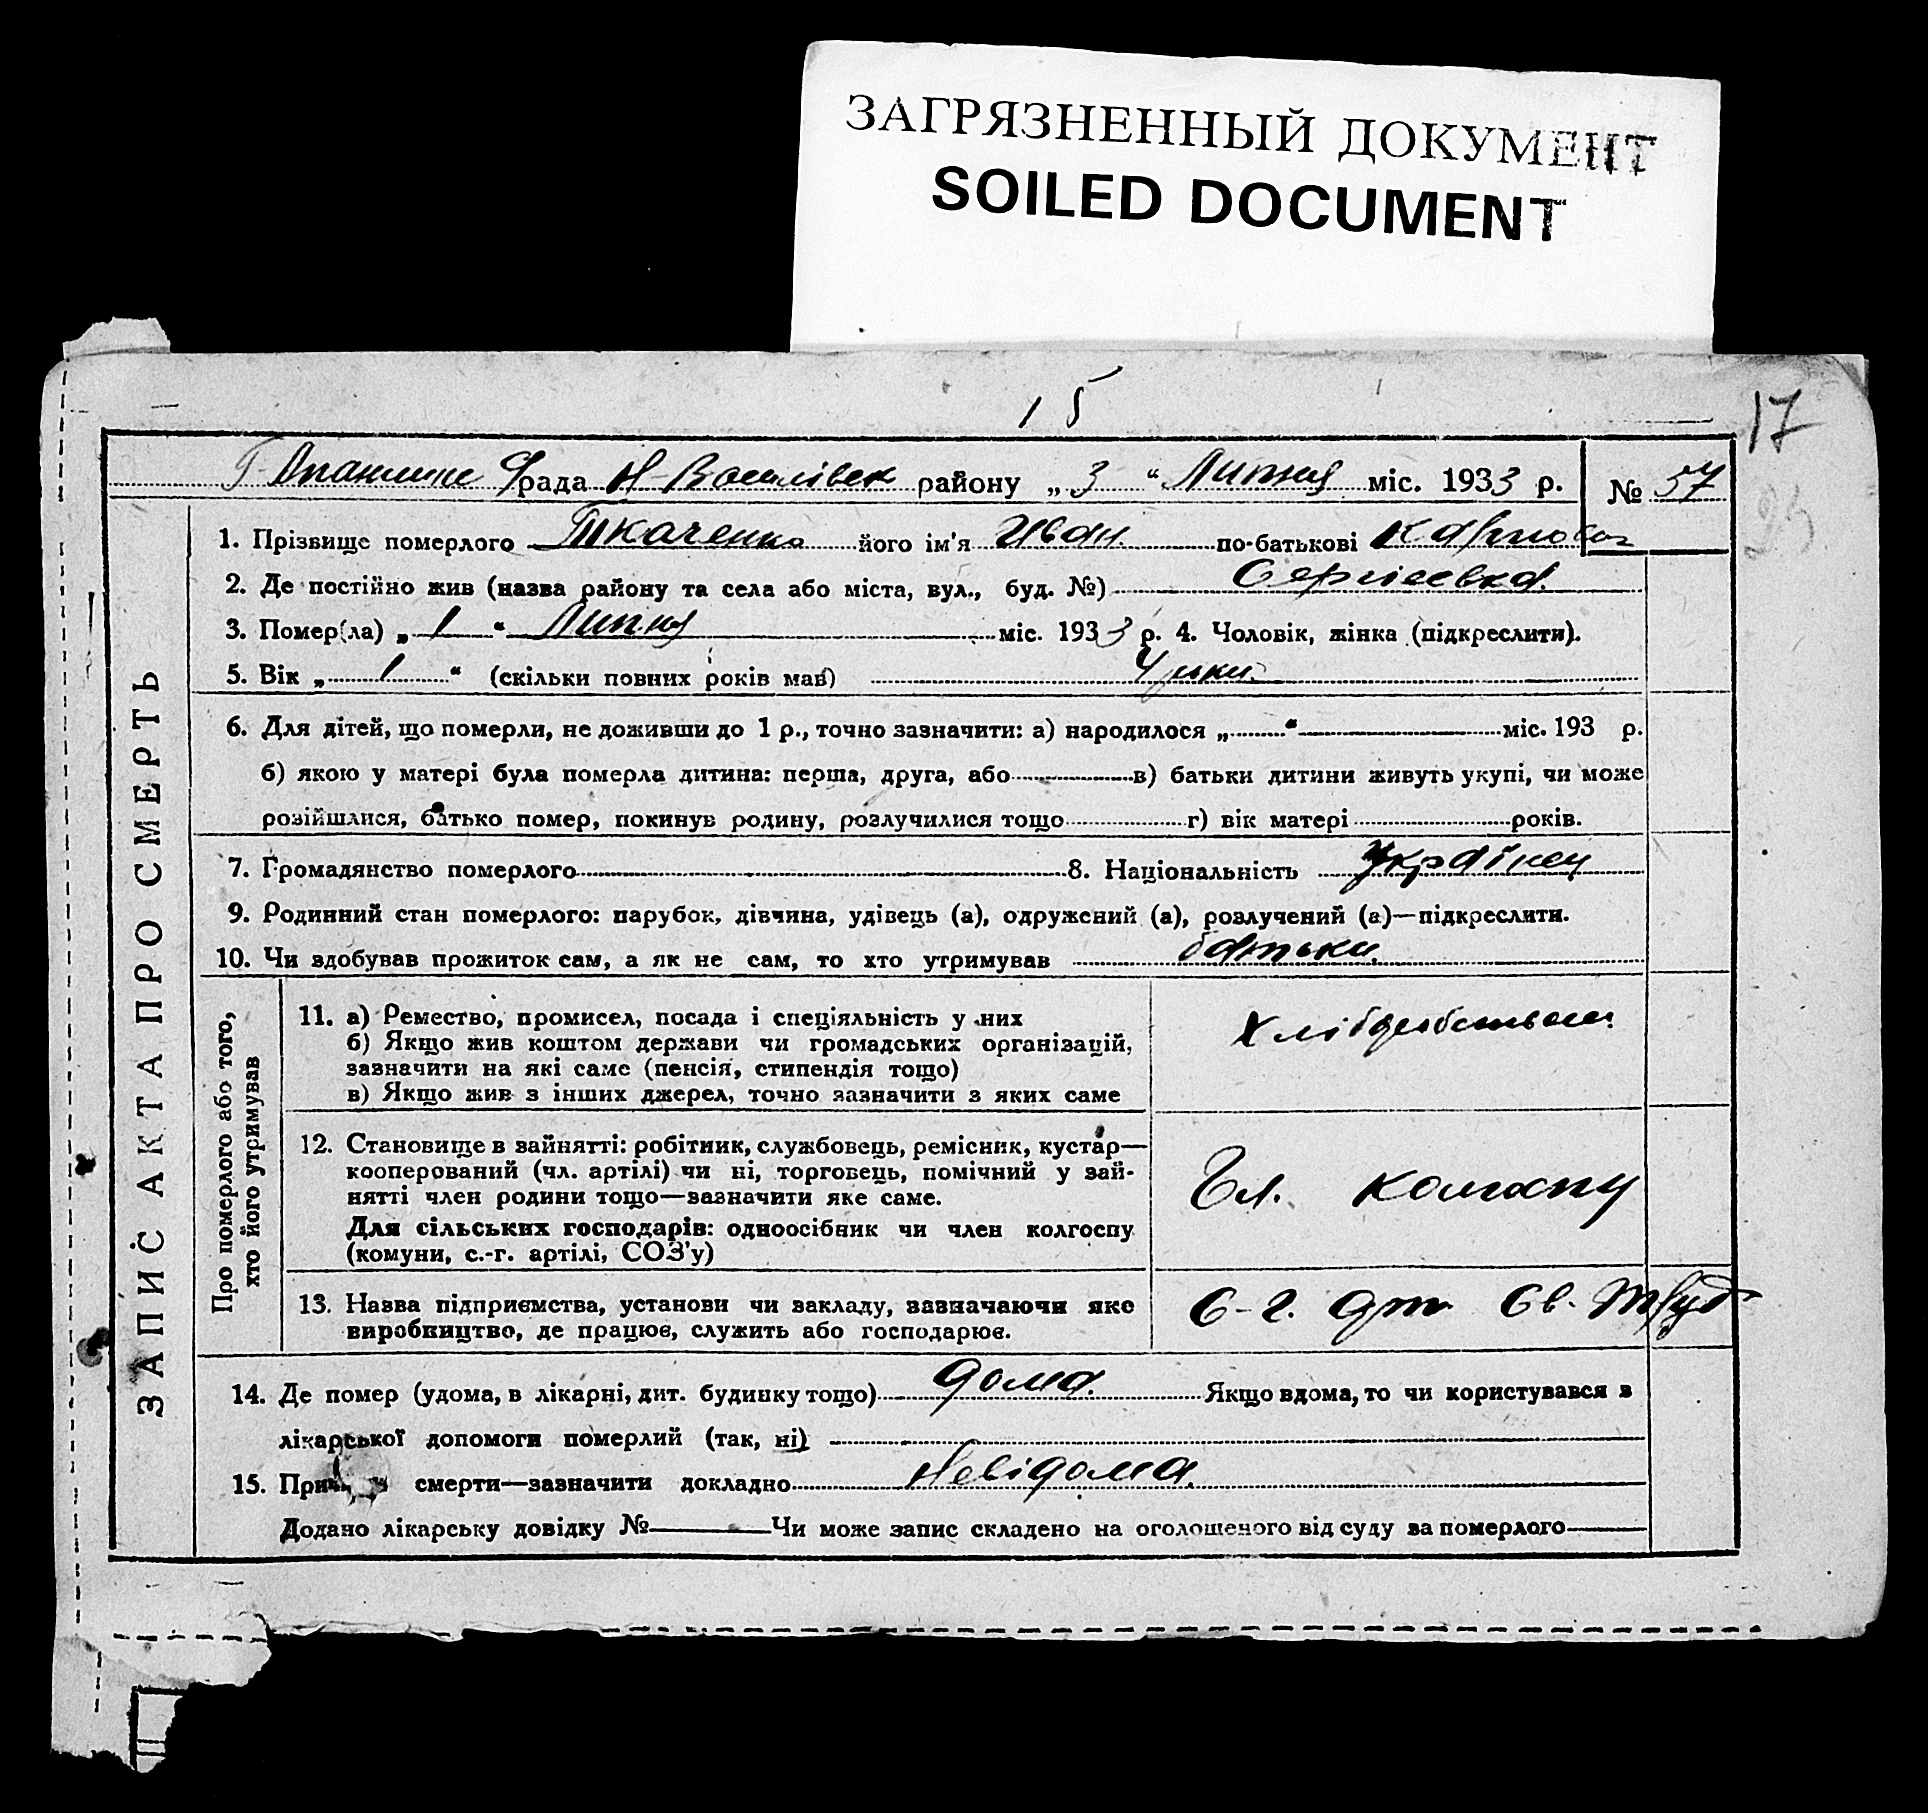 ЗАГРЯЗНЕННЫЙ ДОКУМЕНТ
SOILED DOCUMENT
15
17
рада Н-Василівськ району „ 3 “ Липня міс. 1933 р. № 57
ЗАПИС АКТА ПРО СМЕРТЬ
1. Прізвище померлого Ткаченко його ім'я Иван. по-батькові Карпович
2. Де постійно жив (назва району та села або міста, вул., буд. №) Сергієевка.
3. Помер(ла) „ 1 “ Липня міс. 1933 р. 4. Чоловік, жінка (підкреслити).
5. Вік „ 1 “ (скільки повних років мав)
6. Для дітей, що померли, не доживши до 1 р., точно зазначити: а) народилося „ “ міс. 193 р.
б) якою у матері була померла дитина: перша, друга, або в) батьки дитини живуть укупі, чи може
розійшлися, батько помер, покинув родину, розлучилися тощо г) вік матері років.
7. Громадянство померлого 8. Національність Українец
9. Родинний стан померлого: парубок, дівчина, удівець (а), одружений (а), розлучений (а)—підкреслити.
10. Чи здобував прожиток сам, а як не сам, то хто утримував батьки.
Про померлого або того,
хто його утримував
11. а) Ремество, промисел, посада і спеціяльність у них
б) Якщо жив коштом держави чи громадських організацій,
зазначити на які саме (пенсія, стипендія тощо)
в) Якщо жив з інших джерел, точно зазначити з яких саме
12. Становище в зайнятті: робітник, службовець, ремісник, кустар—
кооперований (чл. артілі) чи ні, торговець, помічний у зай-
нятті член родини тощо—зазначити яке саме.
Для сільських господарів: одноосібник чи член колгоспу
(комуни, с.-г. артілі, СОЗ'у)
Чл. колгоспу
13. Назва підприємства, установи чи закладу, зазначаючи яке
виробництво, де працює, служить або господарює.
С-г. арт. Св. Труд
14. Де помер (удома, в лікарні, дит. будинку тощо) дома. Якщо вдома, то чи користувався в
лікарської допомоги померлий (так, ні)
15. смерти—зазначити докладно Невідома.
Додано лікарську довідку № Чи може запис складено на оголошеного від суду за померлого